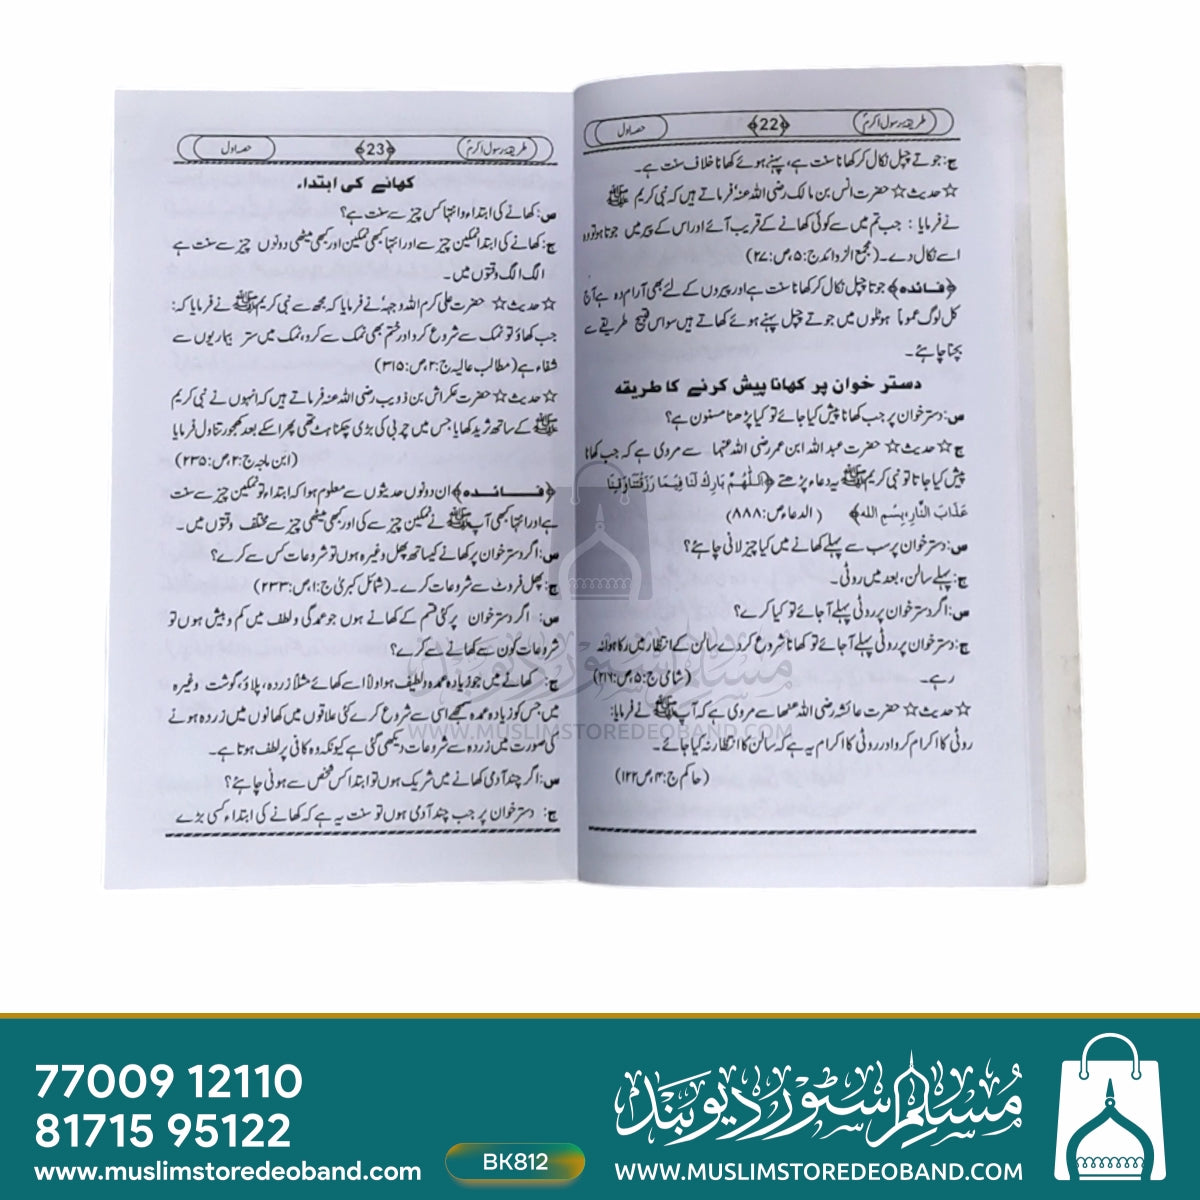 طریقۂ رسول اکرمؐ ﴿22﴾ حصہ اول
ج: جوتے چپل نکال کر کھانا سنت ہے، پہنے ہوئے کھانا خلاف سنت ہے۔
☆ حدیث ☆ حضرت انس بن مالک رضی اللہ عنہٗ فرماتے ہیں کہ نبی کریم ﷺ
نے فرمایا : جب تم میں سے کوئی کھانے کے قریب آئے اور اس کے پیر میں جوتا ہو تو وہ
اسے نکال دے۔ (مجمع الزوائد ج:۵،ص:۲۷)
﴿فائدہ﴾ جوتا چپل نکال کر کھانا سنت ہے اور پیروں کے لئے بھی آرام دہ ہے آج
کل لوگ عموماً ہوٹلوں میں جوتے چپل پہنے ہوئے کھاتے ہیں سو اس قبیح طریقے سے
بچنا چاہئے۔
دستر خوان پر کھانا پیش کرنے کا طریقہ
س: دسترخوان پر جب کھانا پیش کیا جائے تو کیا پڑھنا مسنون ہے؟
ج ☆ حدیث ☆ حضرت عبد اللہ ابن عمر رضی اللہ عنہما سے مروی ہے کہ جب کھانا
پیش کیا جاتا تو نبی کریم ﷺ یہ دعاء پڑھتے ﴿اَللّٰهُمَّ بَارِكْ لَنَا فِيْمَا رَزَقْتَنَا وَقِنَا
عَذَابَ النَّارِ، بِسْمِ الله﴾ (الدعاء ص:۸۸۸)
س: دسترخوان پر سب سے پہلے کھانے میں کیا چیز لانی چاہئے؟
ج: پہلے سالن، بعد میں روٹی۔
س: اگر دسترخوان پر روٹی پہلے آجائے تو کیا کرے؟
ج: دسترخوان پر روٹی پہلے آجائے تو کھانا شروع کردے سالن کے انتظار میں رکا ہوا نہ
رہے۔ (شامی ج:۵،ص:۲۱۷)
☆ حدیث ☆ حضرت عائشہ رضی اللہ عنھا سے مروی ہے کہ آپ ﷺ نے فرمایا:
روٹی کا اکرام کرو اور روٹی کا اکرام یہ ہے کہ سالن کا انتظار نہ کیا جائے۔
(حاکم ج:۴،ص:۱۲۲)
طریقۂ رسول اکرمؐ ﴿23﴾ حصہ اول
کھانے کی ابتداء
س: کھانے کی ابتداء و انتہا کس چیز سے سنت ہے؟
ج: کھانے کی ابتدا نمکین چیز سے اور انتہا کبھی نمکین اور کبھی میٹھی دونوں چیز سے سنت ہے
الگ الگ وقتوں میں۔
☆ حدیث ☆ حضرت علی کرم اللہ وجہہٗ نے فرمایا کہ مجھ سے نبی کریم ﷺ نے فرمایا کہ:
جب کھاؤ تو نمک سے شروع کرو اور ختم بھی نمک سے کرو، نمک میں ستر بیماریوں سے
شفاء ہے (مطالب عالیہ ج:۲،ص:۳۱۵)
☆ حدیث ☆ حضرت عکراش بن ذویب رضی اللہ عنہ فرماتے ہیں کہ انہوں نے نبی کریم
ﷺ کے ساتھ ثرید کھایا جس میں چربی کی بڑی چکناہٹ تھی پھر اسکے بعد کھجور تناول فرمایا
(ابن ماجہ ج:۲،ص:۲۳۵)
﴿فائدہ﴾ ان دونوں حدیثوں سے معلوم ہوا کہ ابتداء تو نمکین چیز سے سنت
ہے اور انتہا کبھی آپ ﷺ نے نمکین چیز سے کی اور کبھی میٹھی چیز سے مختلف وقتوں میں۔
س: اگر دسترخوان پر کھانے کیساتھ پھل وغیرہ ہوں تو شروعات کس سے کرے؟
ج: پھل فروٹ سے شروعات کرے۔ (شمائل کبریٰ ج:۱،ص:۲۳۳)
س: اگر دسترخوان پر کئی قسم کے کھانے ہوں جو عمدگی و لطف میں کم و بیش ہوں تو
شروعات کون سے کھانے سے کرے؟
ج: کھانے میں جو زیادہ عمدہ ولطیف ہو اولاً اسے کھائے مثلاً زردہ، پلاؤ، گوشت وغیرہ
میں جس کو زیادہ عمدہ سمجھے اسی سے شروع کرے کئی علاقوں میں کھانوں میں زردہ ہونے
کی صورت میں زردہ سے شروعات دیکھی گئی ہے کیونکہ وہ کافی پر لطف ہوتا ہے۔
س: اگر چند آدمی کھانے میں شریک ہوں تو ابتدا کس شخص سے ہونی چاہئے؟
ج: دسترخوان پر جب چند آدمی ہوں تو سنت یہ ہے کہ کھانے کی ابتداء کسی بڑے
مسلم سٹور دیوبند
WWW.MUSLIMSTOREDEOBAND.COM
77009 12110
81715 95122
www.muslimstoredeoband.com
BK812
مسلم سٹور دیوبند
WWW.MUSLIMSTOREDEOBAND.COM